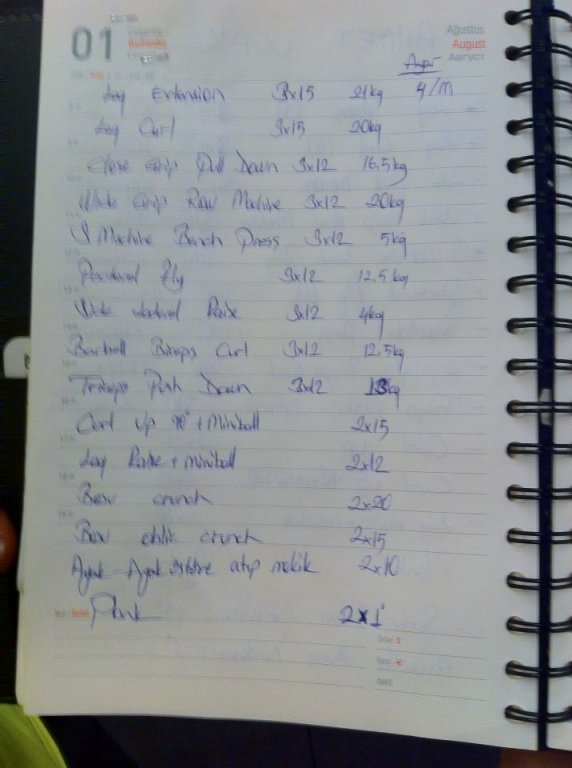 01
Ağustos
August
Август
Leg Extension 3x15 21kg 4/M
Leg Curl 3x15 20kg
Close Grip Pull Down 3x12 16,5kg
Wide Grip Row Machine 3x12 20kg
V Machine Bench Press 3x12 5kg
Fly 3x12 12,5kg
Side Lateral Raise 3x12 4kg
Barbell Biceps Curl 3x12 12,5kg
Triceps Push Down 3x12 kg
Curl Up 90° + Miniball 2x15
Leg Raise + miniball 2x12
Bosu crunch 2x20
Bosu oblik crunch 2x15
Ayak-Ayak üstüne atıp mekik 2x10
Plank 2x1'